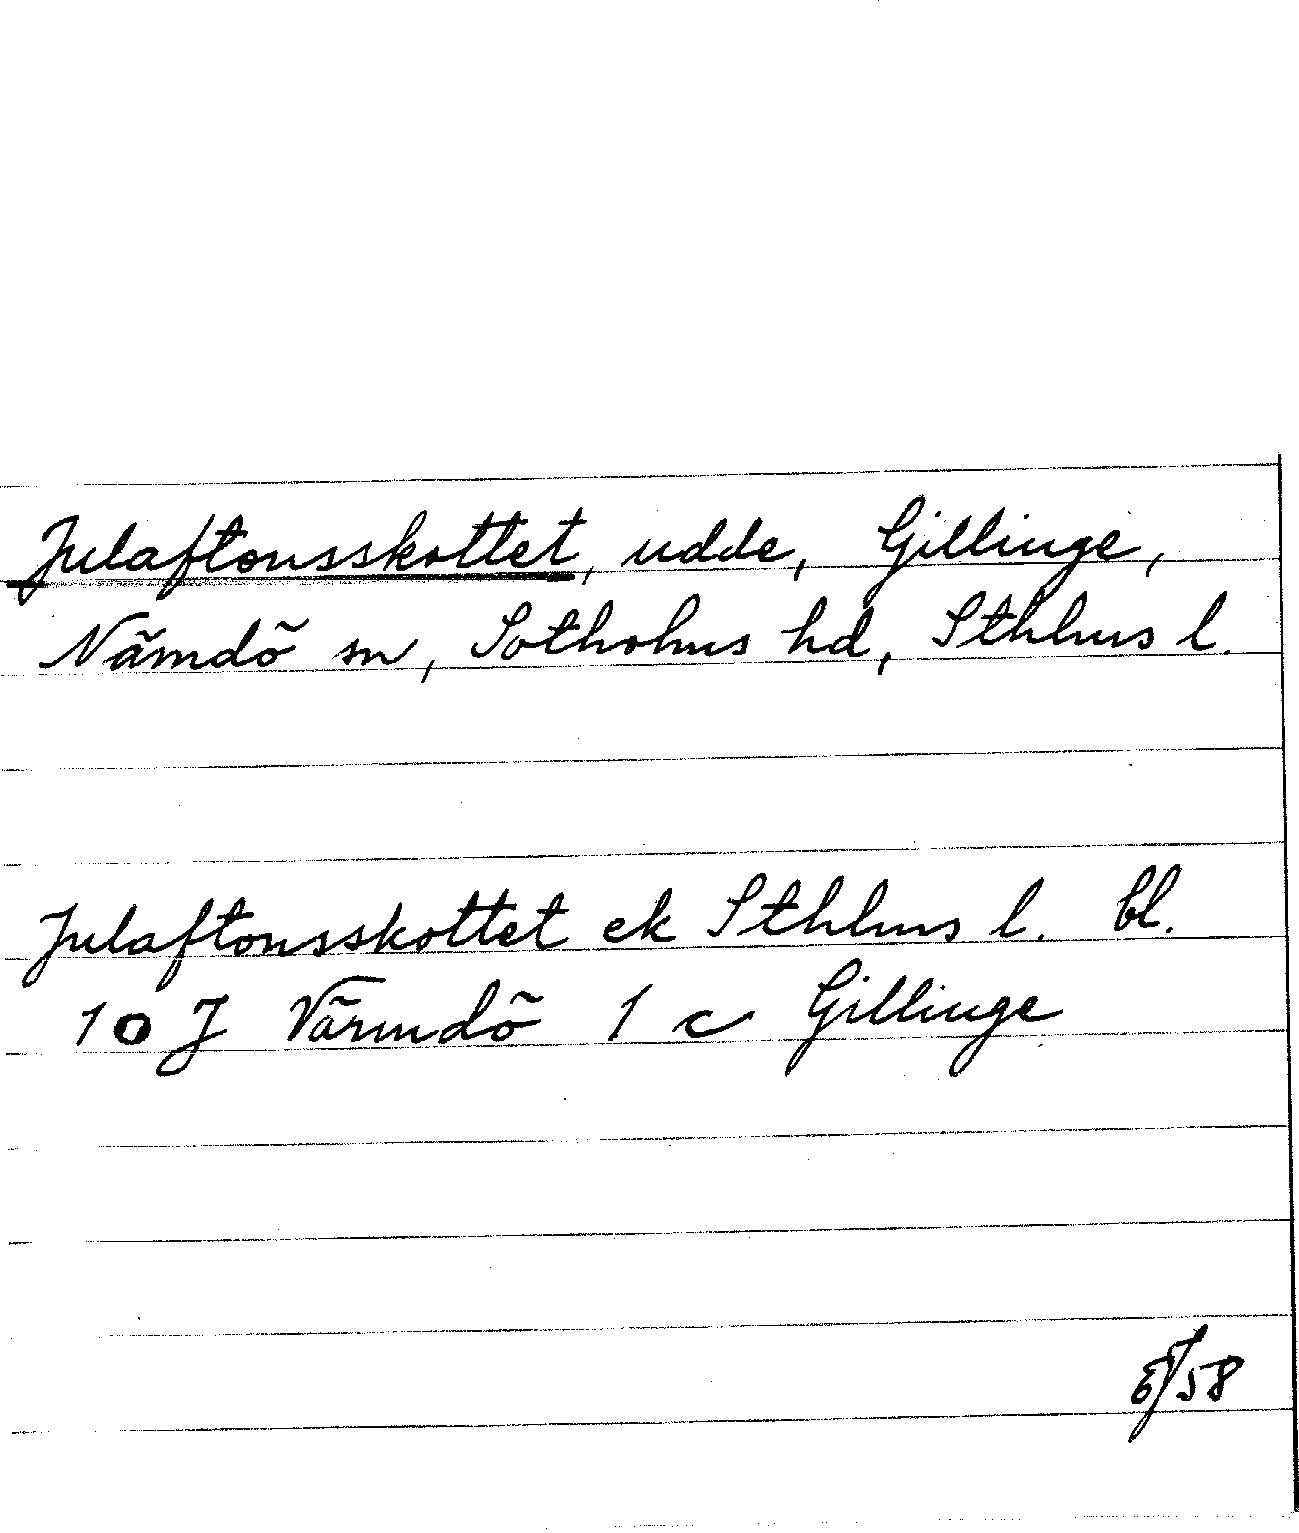 Julaftonsskottet, udde, Gillinge,
Nämdö sn, Sotholms hd, Sthlms l.
Julaftonsskottet ek Sthlms l. bl.
10 J Värmdö 1 c Gillinge
58